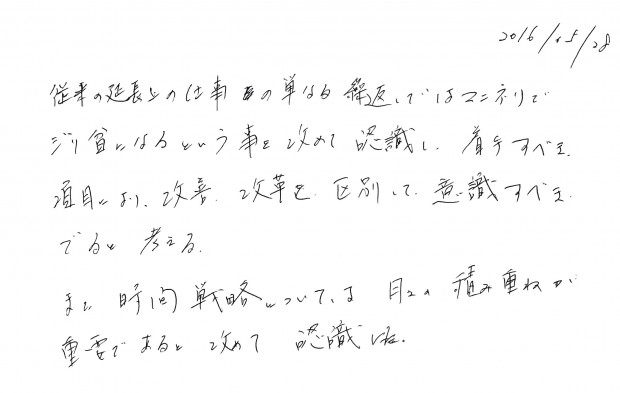 2016/05/28
従来の延長上の仕事の単なる繰返しではマンネリで
ジリ貧になるという事を改めて認識し、着手すべき
項目により、改善、改革を区別して意識すべき
であると考える。
また時間戦略については日々の積み重ねが
重要であると改めて認識した。